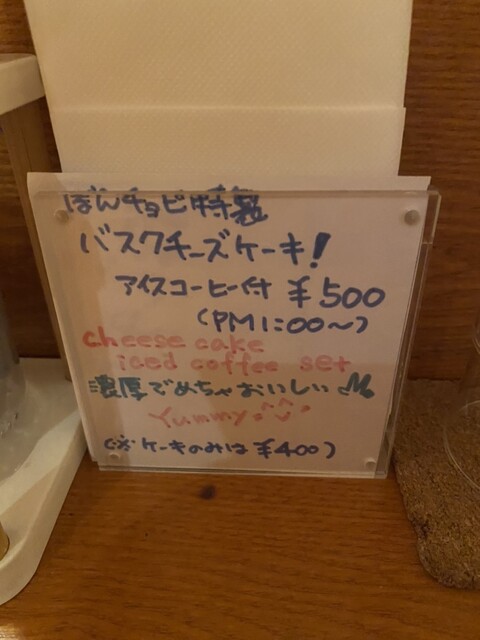 ぼんチョビ特製
バスクチーズケーキ!
アイスコーヒー付 ¥500
(PM1:00～)
cheese cake
iced coffee set
濃厚でめちゃおいしい
Yummy
(※ケーキのみは ¥400)